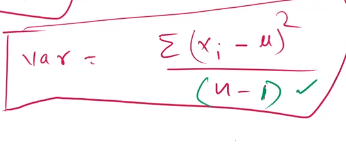 var = Σ(xᵢ - μ)²
(n - 1) ✓